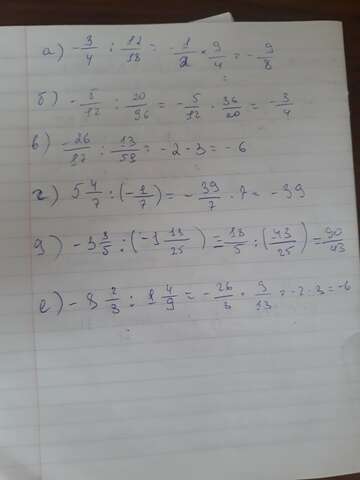 а) -3/4 : 12/18 = -1/2 · 9/4 = -9/8
б) -5/12 : 20/36 = -5/12 · 36/20 = -3/4
в) -26/17 : 13/51 = -2·3 = -6
г) 5 4/7 : (-1/7) = -39/7 · 7 = -39
д) -3 3/5 : (-1 18/25) = 18/5 : (43/25) = 90/43
е) -8 2/3 : 1 4/9 = -26/3 · 9/13 = -2·3 = -6